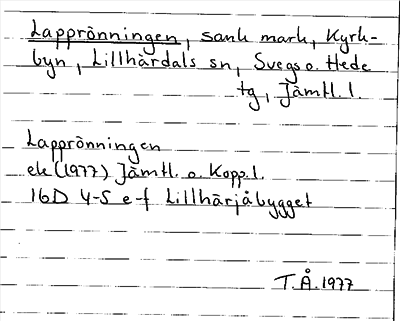 Lapprönningen, sank mark, Kyrk-
byn, Lillhärdals sn, Svegs o. Hede
tg, Jämtl. l.
Lapprönningen
ek (1977) Jämtl. o. Kopp. l.
16D 4-5 e-f Lillhärjåbygget
T. Å. 1977